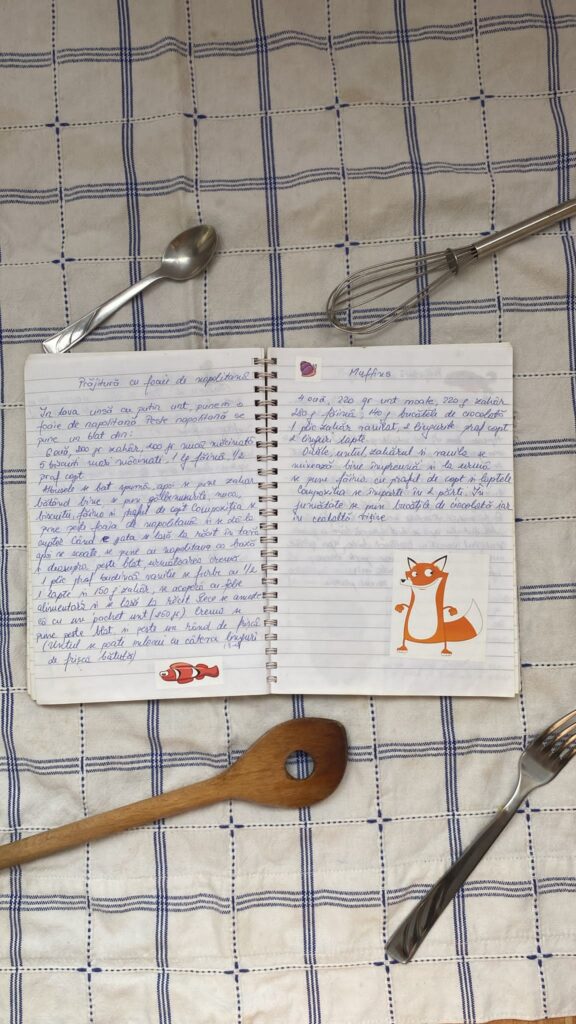 Prăjitură cu foaie de napolitană
În tava unsă cu puțin unt, punem o
foaie de napolitană. Peste napolitană se
pune un blat din:
6 ouă, 200 gr zahăr, 100 gr nucă măcinată
5 biscuiti mari măcinati. 1 lg făină, 1/2
praf copt.
Albusele se bat spumă, apoi se pune zahăr
bătând bine, se pun gălbenusurile, nuca,
biscuitii, făina si praful de copt. Compozitia se
pune peste foaia de napolitană si se dă la
cuptor. Când e gata se lasă la răcit în tavă
apoi se scoate, se pune cu napolitana ca bază
si deasupra peste blat următoarea cremă:
1 plic praf budincă vanilie se fierbe cu 1/2
l lapte si 150 g zahăr, se acoperă cu folie
alimentară si se lasă la răcit. Rece se amestecă
cu un pachet unt (250 gr) Crema se
pune peste blat si peste un rând de friscă
(Untul se poate cu câteva linguri
de frisca bătută)
Muffins
4 ouă, 220 gr unt moale, 220 g zahăr
280 g făină, 140 g bucătele de ciocolată
1 plic zahăr vanilat, 2 lingurite praf copt
2 linguri lapte.
Ouăle, untul zahărul si vanilia se
mixează bine împreună si la urmă
se pune făina cu praful de copt si laptele
Compozitia se împarte în 2 părti. În
jumătate se pune bucătile de ciocolată iar
în cealaltă